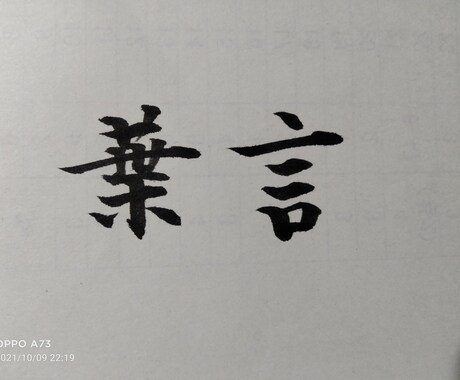 言葉
OPPO A73
2021/10/09 22:19